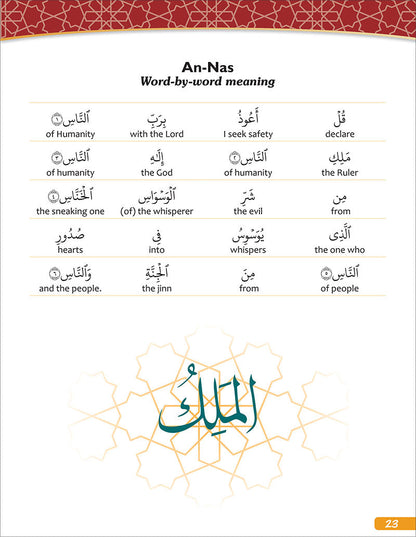 An-Nas
Word-by-word meaning
قُلْ أَعُوذُ بِرَبِّ ٱلنَّاسِ ۝١
declare I seek safety with the Lord of Humanity
مَلِكِ ٱلنَّاسِ ۝٢ إِلَٰهِ ٱلنَّاسِ ۝٣
the Ruler of humanity the God of humanity
مِن شَرِّ ٱلْوَسْوَاسِ ٱلْخَنَّاسِ ۝٤
from the evil (of) the whisperer the sneaking one
ٱلَّذِى يُوَسْوِسُ فِى صُدُورِ
the one who whispers into hearts
ٱلنَّاسِ ۝٥ مِنَ ٱلْجِنَّةِ وَٱلنَّاسِ ۝٦
of people from the jinn and the people.
المَلِكُ
23